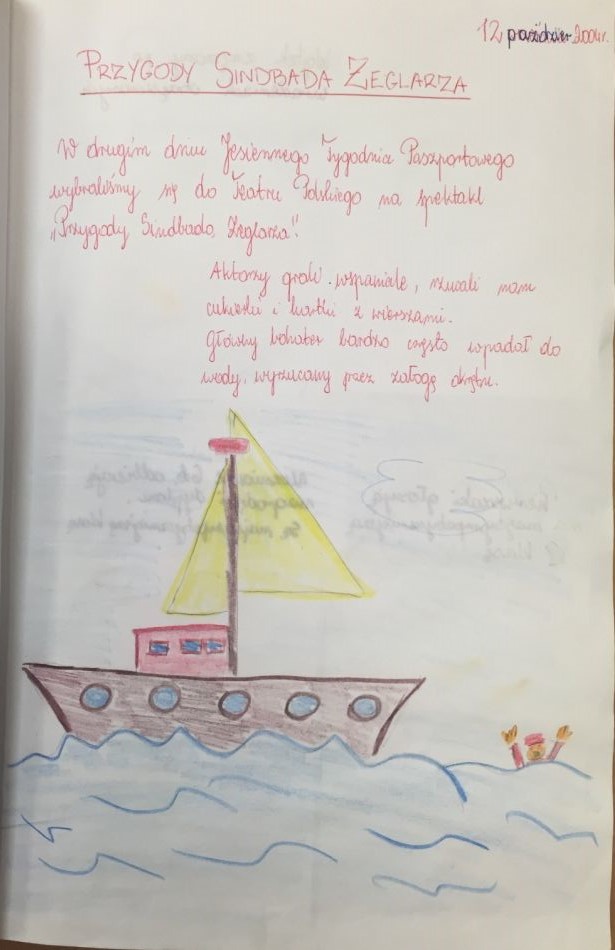 12 paździer 2004r.
PRZYGODY SINDBADA ŻEGLARZA
W drugim dniu Jesiennego Tygodnia Paszportowego
wybraliśmy się do Teatru Polskiego na spektakl
„Przygody Sindbada Żeglarza".
Aktorzy grali wspaniale, rzucali nam
cukierki i kartki z wierszami.
Główny bohater bardzo często wpadał do
wody, wyrzucany przez załogę okrętu.